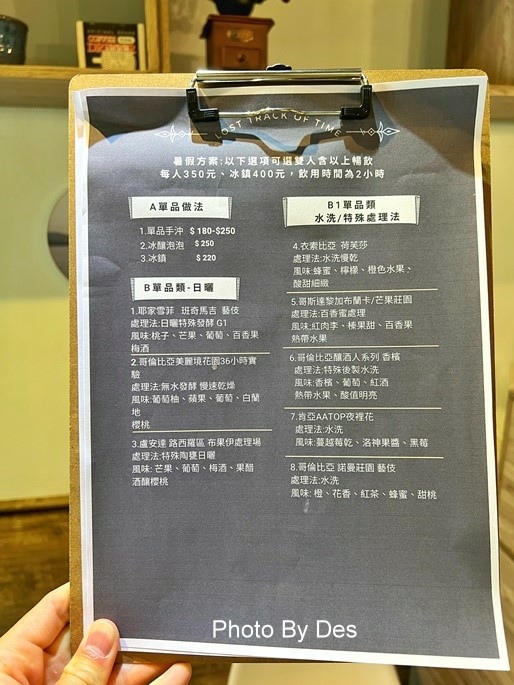 ORIGINAL BRAND
COFFEE
LOST TRACK OF TIME
暑假方案:以下選項可選雙人含以上暢飲
每人350元、冰鎮400元，飲用時間為2小時
A單品做法
1.單品手沖 $ 180-$250
2.冰釀泡泡 $ 250
3.冰鎮 $ 220
B單品類-日曬
1.耶家雪菲 班奇馬吉 藝伎
處理法:日曬特殊發酵 G1
風味:桃子、芒果、葡萄、百香果
梅酒
2.哥倫比亞美麗境花園36小時實
驗
處理法:無水發酵 慢速乾燥
風味:葡萄柚、蘋果、葡萄、白蘭
地
櫻桃
3.盧安達 路西羅區 布果伊處理場
處理法:特殊陶甕日曬
風味: 芒果、葡萄、梅酒、果醋
酒釀櫻桃
B1單品類
水洗/特殊處理法
4.衣索比亞 荷芙莎
處理法:水洗慢乾
風味:蜂蜜、檸檬、橙色水果、
酸甜細緻
5.哥斯達黎加布蘭卡/芒果莊園
處理法:百香蜜處理
風味:紅肉李、榛果甜、百香果
熱帶水果
6.哥倫比亞釀酒人系列 香檳
處理法:特殊後製水洗
風味:香檳、葡萄、紅酒
熱帶水果、酸值明亮
7.肯亞AATOP夜裡花
處理法:水洗
風味:蔓越莓乾、洛神果醬、黑莓
8.哥倫比亞 諾曼莊園 藝伎
處理法:水洗
風味: 橙、花香、紅茶、蜂蜜、甜桃
Photo By Des